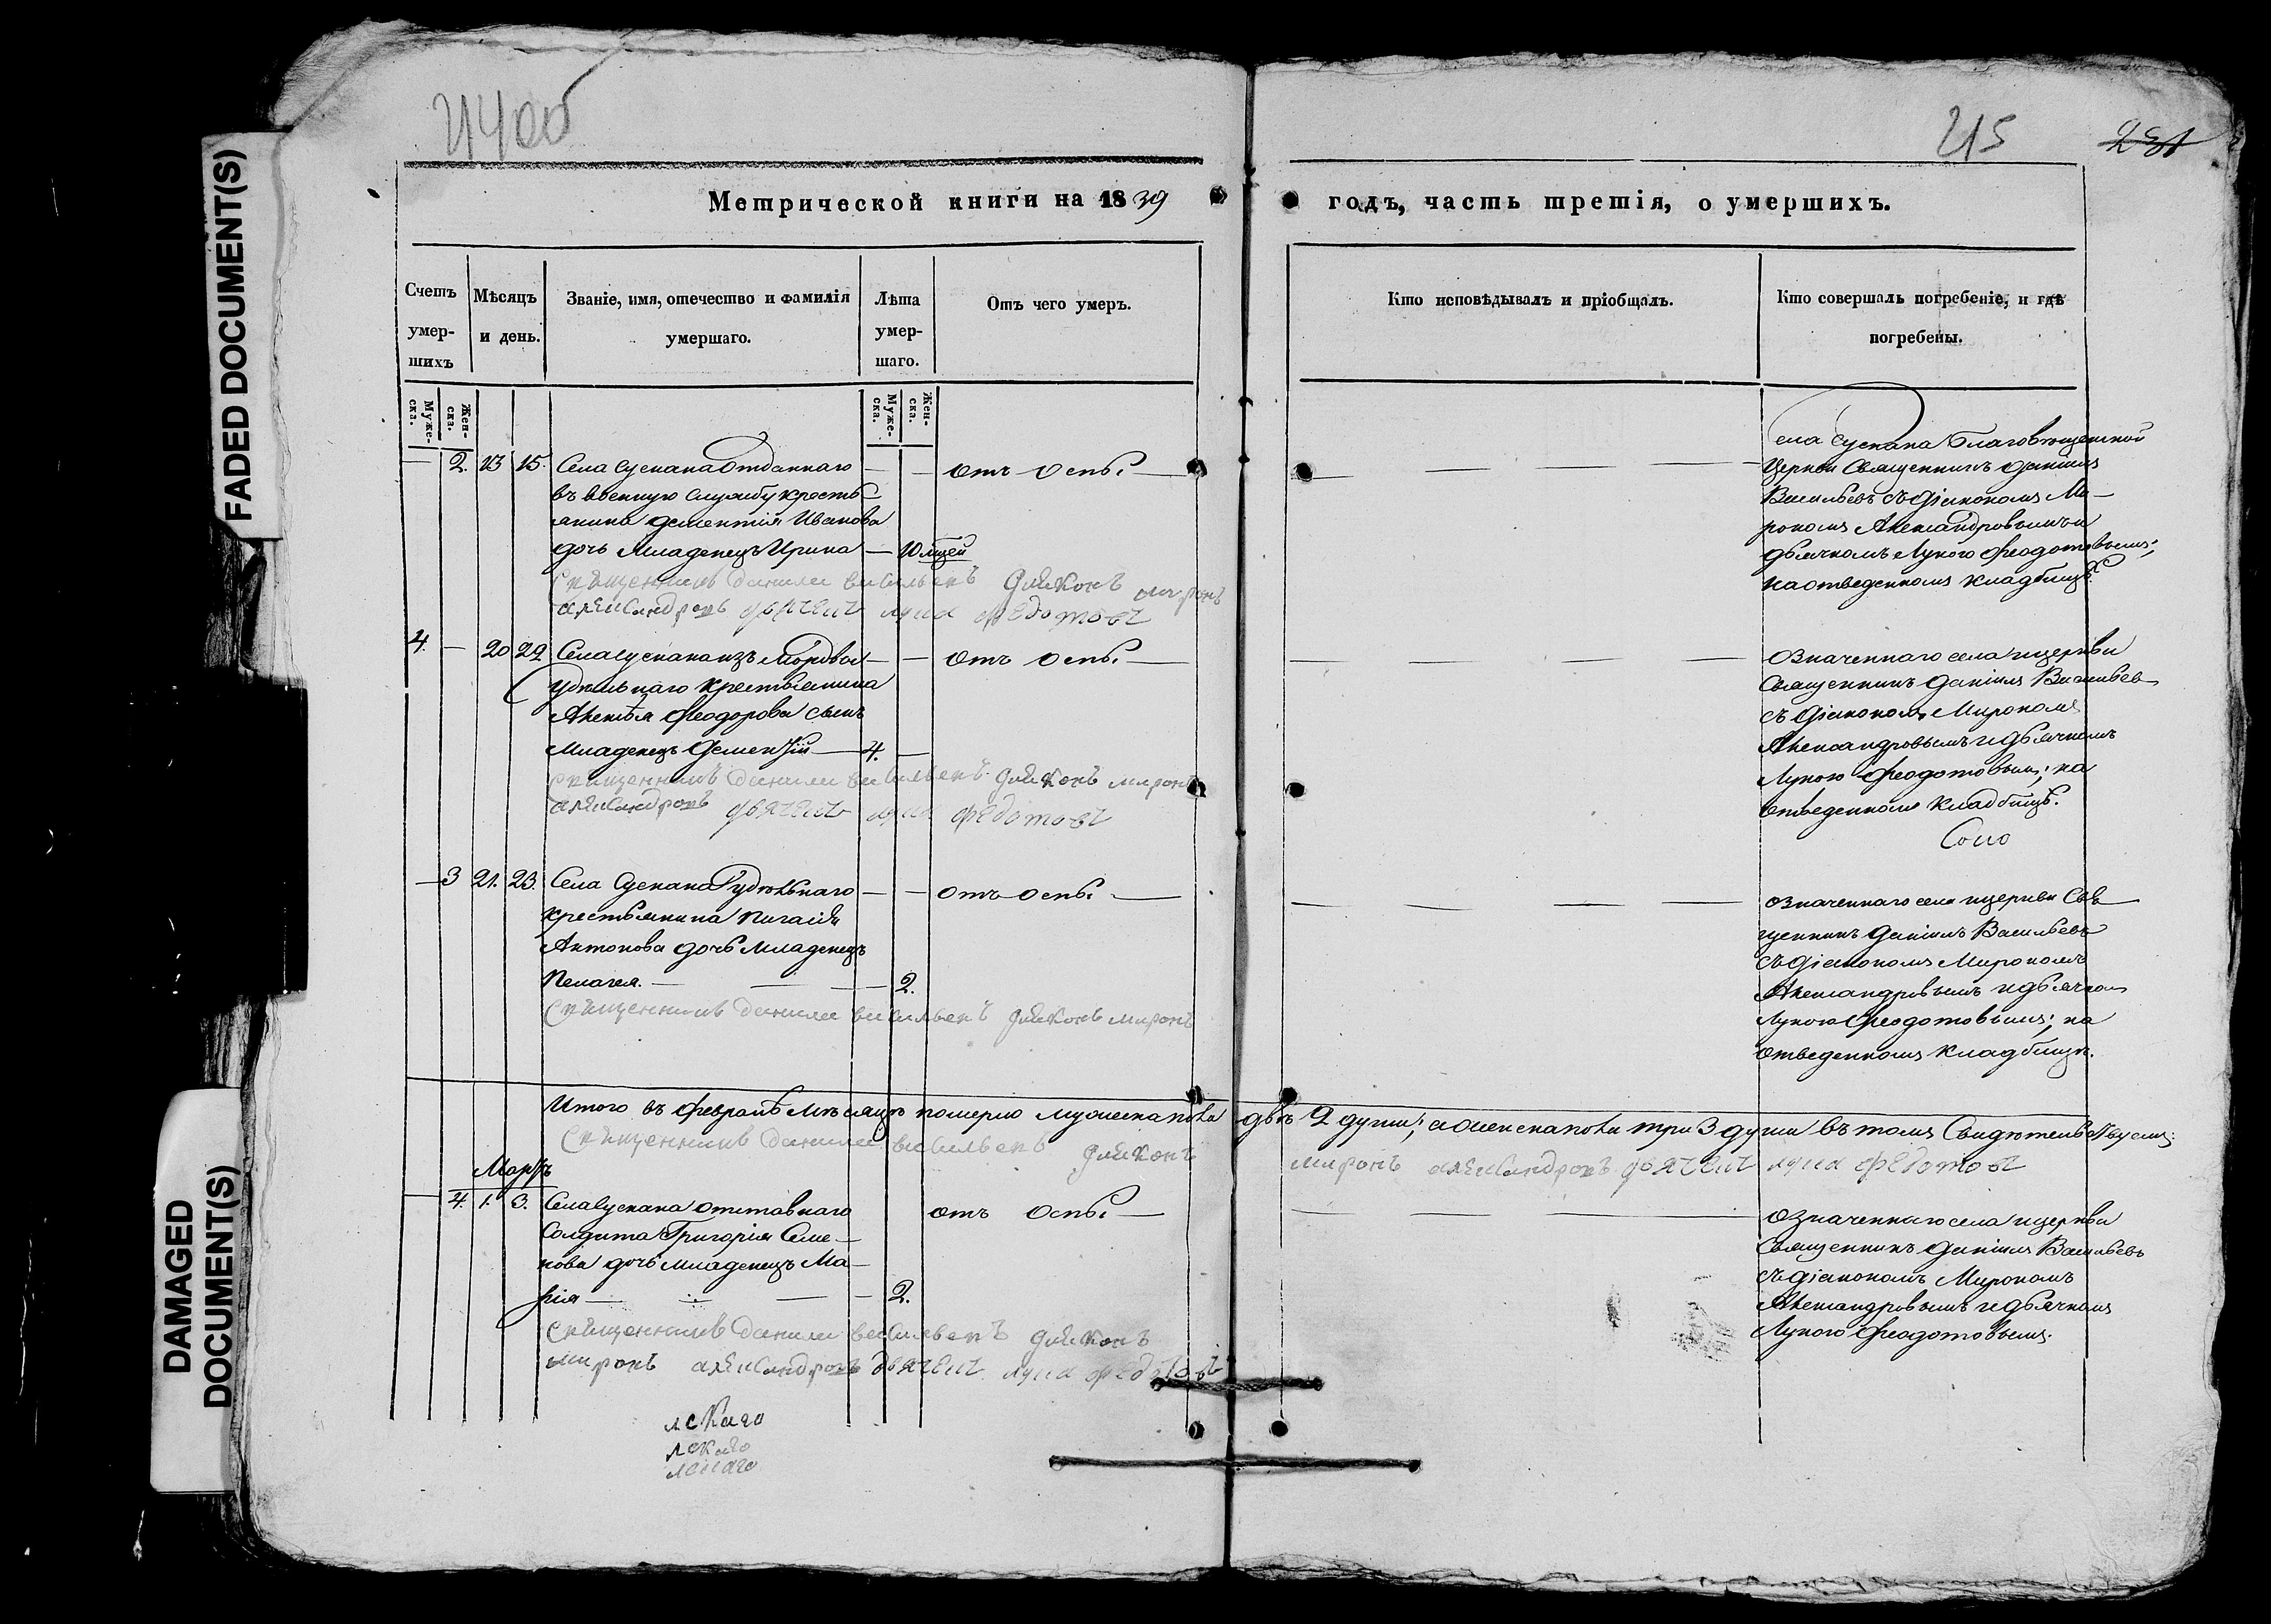 FADED DOCUMENT(S)
DAMAGED
DOCUMENT(S)
215
231
Метрической книги на 1839
годъ, часть третія, о умершихъ.
Счетъ умер-шихъ
Мѣсяцъ и день.
Званіе, имя, отечество и фамилія умершаго.
Лѣта умер-шаго.
Отъ чего умеръ.
Кто исповѣдывалъ и пріобщалъ.
Кто совершалъ погребеніе, и гдѣ погребены.
Муже-ска.
Жен-ска.
Муже-ска.
Жен-ска.
— 2. 13 15. Села Сускана отданнаго — — отъ оспы —
въ военную службу кресть-
янина Дементія Иванова
дочь младенецъ Ирина — 10 мцей
Священникъ Данила Васильевъ Диаконъ Миронъ
Александровъ дьячекъ Лука Федотовъ
Села Сускана Благовѣщенской
Церкви Священникъ Даніилъ
Васильевъ съ Діакономъ Ми-
рономъ Александровымъ и
дьячкомъ Лукою Феодотовымъ;
на отведенномъ кладбищѣ
4. — 20 22 Села Сускана изъ Мордвы — — отъ оспы —
Удѣльнаго крестьянина
Алексѣя Феодорова сынъ
Младенецъ Дементій — 4. —
Священникъ Данила Васильевъ Диаконъ Миронъ
Александровъ дьячекъ Лука Федотовъ
Означеннаго села и церкви
Священникъ Даніилъ Васильев
съ Діакономъ Мирономъ
Александровымъ и дьячкомъ
Лукою Феодотовымъ; на
отведенномъ кладбищѣ.
— 3 21. 23. Села Сускана Удѣльнаго — — отъ оспы —
крестьянина
Антонова дочь младенецъ
Пелагея. — 2.
Священникъ Данила Васильевъ Диаконъ Миронъ
означеннаго села и церкви Свя-
щенникъ Даніилъ Васильевъ
съ Діакономъ Мирономъ
Александровымъ и дьячком
Лукою Феодотовымъ; на
отведенномъ кладбищѣ.
Итого въ февралѣ мѣсяцѣ померло мужеска пола двѣ 2 души; а женска пола три 3 души въ томъ Свидѣтельствуемъ:
Священникъ Данила Васильевъ Диаконъ Миронъ Александровъ дьячекъ Лука Федотовъ
Мартъ
— 4. 1. 3. Села Сускана отставнаго отъ оспы —
Солдата Григорія Семе-
нова дочь младенецъ Ма-
рія — 2.
Священникъ Данила Васильевъ Диаконъ
Миронъ Александровъ дьячекъ Лука Федотовъ
Означеннаго села и церкви
Священникъ Даніилъ Васильевъ
съ Діакономъ Мирономъ
Александровымъ и дьячкомъ
Лукою Феодотовымъ.
лскаго
лскаго